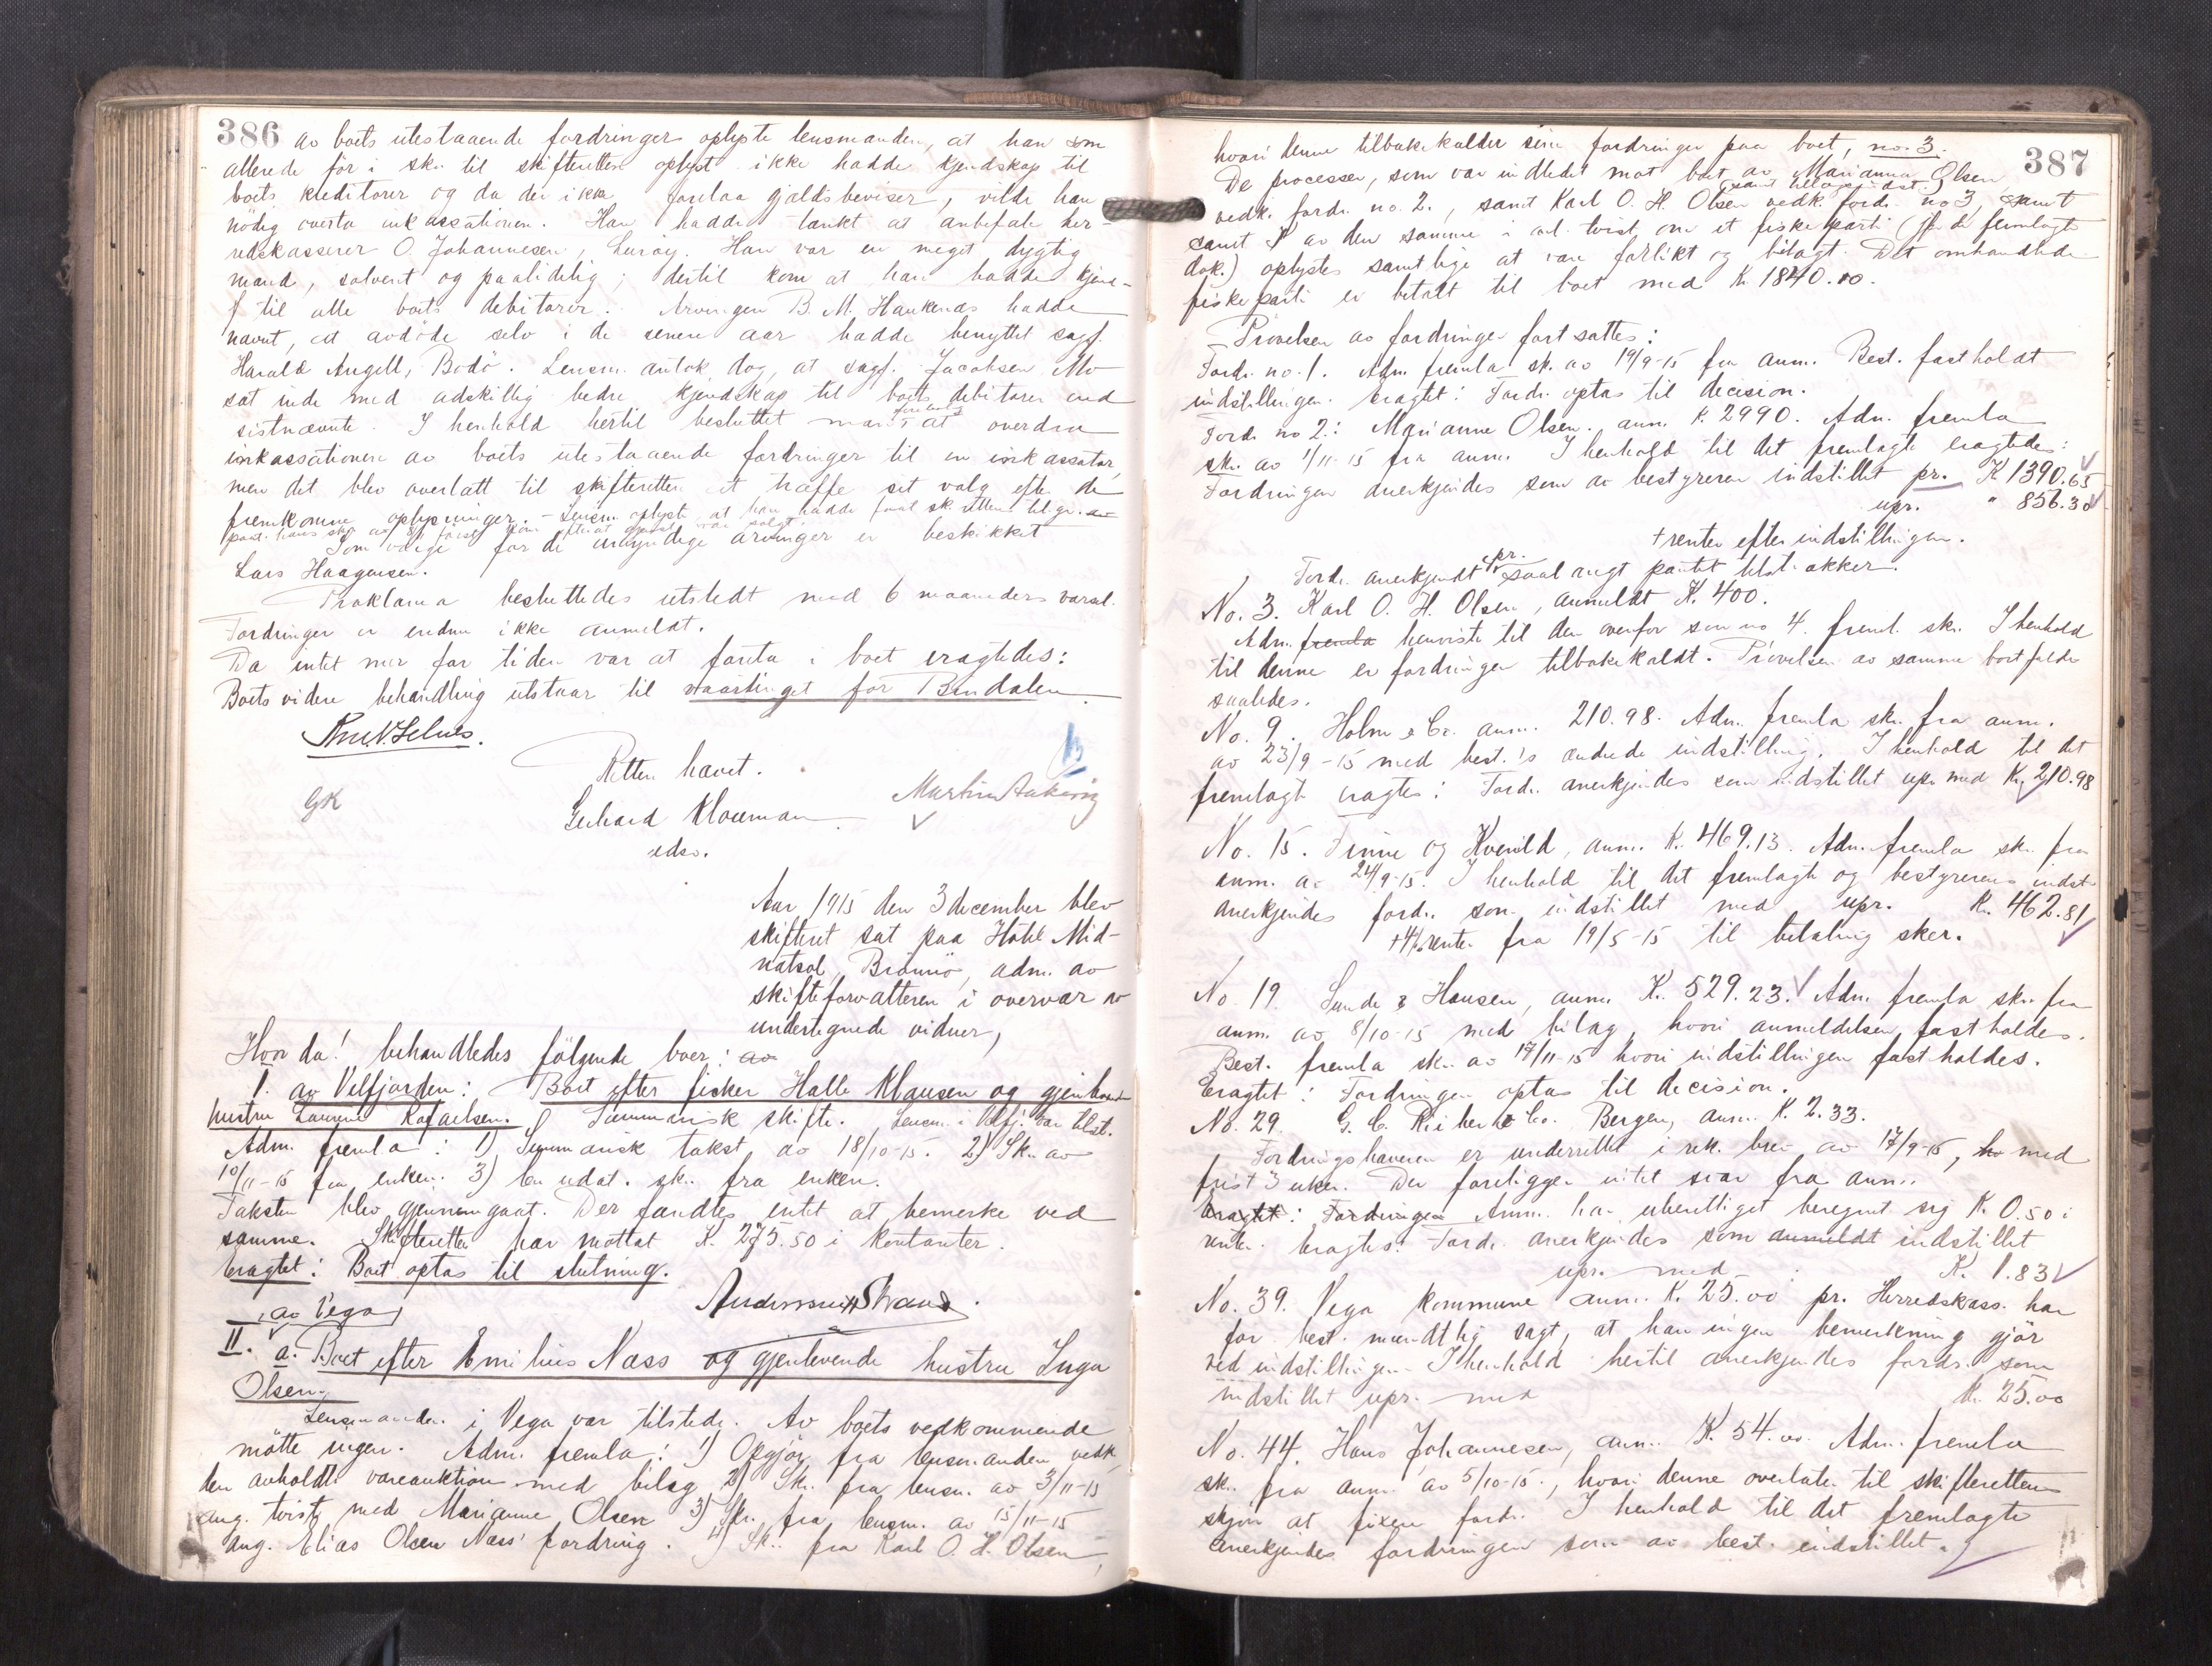 386
av boets utestaaende fordringer oplyste lensmanden, at han som
allerede før i skr. til skifteretten oplyst ikke hadde kjendskap til
boets kreditorer og da der ikke forelaa gjældsbeviser, vilde han
nødig overta inkassationen. Han hadde tænkt at anbefale her-
redskasserer O. Johannesen, Lurøy. Han var en meget dygtig
mand, solvent og paalidelig; dertil kom at han hadde kjend-
til alle boets debitorer. Arvingen B. M. Haukenæs hadde
nævnt, at avdøde selv i de senere aar hadde benyttet sagf.
Harald Angell, Bodø. Lensm. antok dog, at sagf. Jacobsen Mo
sat inde med adskillig bedre kjendskap til boets debitorer end
sistnævnte. I henhold hertil besluttet at overdra
inkassationen av boets utestaaende fordringer til en inkassator,
men det blev overlatt til skifteretten at træffe sit valg efter de
fremkomne oplysninger. - Lensm. oplyste at han hadde faat sk. rettens telgr.
Som værge for de umyndige arvinger er beskikket
Lars Haagensen.
Proklama besluttedes utstedt med 6 maaneders varsel.
Fordringer er endnu ikke anmeldt.
Da intet mer for tiden var at foreta i boet eragtedes:
Boets videre behandling utstaar til vaartinget for Bindalen
Retten hævet.
GK
Gerhard Klouman
edsv.
Aar 1915 den 3 december blev
skifteret sat paa Hotel Mid-
natsol, Brønnø, adm. av
skifteforvalteren i overvær av
undertegnede vidner,
Hvor da! behandledes følgende boer: av
I. av Velfjorden: Boet efter fisker Halle Klausen og gjenlevende
hustru Laurine Rafaelsen. Summarisk skifte. Lensm. i Velfj. var tilst.
Adm. fremla: 1) Summarisk takst av 18/10-15. 2) Skr. av
10/11-15 fra enken. 3) En udat. skr. fra enken.
Taksten blev gjennemgaat. Der fandtes intet at bemerke ved
samme. Skifteretten har mottat K. 275.50 i kontanter.
Eragtet: Boet optas til slutning.
av Vega
II. a. Boet efter Emilius Næss og gjenlevende hustru Inga
Olsen.
Lensmanden i Vega var tilstede. Av boets vedkommende
møtte ingen. Adm. fremla: 1) Opgjør fra lensmanden vedk.
den avholdte vareauktion med bilag 2) Skr. fra lensm. av 3/11-15
ang. tvist med Marianne Olsen 3) Skr. fra lensm. av 15/11-15
ang. Elias Olsen Næss' fordring. 4) Skr. fra Karl O. H. Olsen,
387
hvori denne tilbakekalder sine fordringer paa boet, no. 3.
De processer, som var indledet mot boet av Marianne Olsen
vedk. fordr. no. 2., samt Karl O. H. Olsen vedk. fordr. no 3, samt
samt av den samme i anl. tvist om et fiskeparti (jfr. de fremlagte
dok.) oplystes samtlige at være forlikt og bilagt. Det omhandlede
fiskeparti er betalt til boet med K. 1840.00.
Prøvelsen av fordringer fortsattes:
Fordr. no. 1. Adm. fremla sk. av 19/9-15 fra anm. Best. fastholdt
indstillingen. Eragtet: Fordr. optas til decision.
Fordr. no 2.: Marianne Olsen. anm. K. 2990. Adm. fremla
skr. av 1/11-15 fra anm. I henhold til det fremlagte eragtedes:
Fordringen anerkjendes som av bestyreren indstillet pr. K 1390.65
upr. " 856.30
+ renter efter indstillingen.
Fordr. anerkjendt pr. saalangt pantet tilstrækker.
No. 3. Karl O. H. Olsen, anmeldt K. 400.
Adm. fremla henviste til den ovenfor som no 4 freml. skr. I henhold
til denne er fordringen tilbakekaldt. Prøvelsen av samme bortfalder
saaledes.
No. 9. Holm & Co. anm. 210.98. Adm. fremla skr. fra anm.
av 23/9-15 med best.'s ændrede indstilling. I henhold til det
fremlagte eragtes: Fordr. anerkjendes som indstillet upr. med K. 210.98
No. 15. Finne og Kvenild, anm. K. 469.13. Adm. fremla skr. fra
anm. av 24/9-15. I henhold til det fremlagte og bestyrerens indst.
anerkjendes fordr. som indstillet med upr. K. 462.81
+4% renter fra 19/5-15 til betaling sker.
No. 19. Sunde & Hansen, anm. K. 529.23. Adm. fremla skr. fra
anm. av 8/10-15 med bilag, hvori anmeldelsen fastholdes.
Best. fremla skr. av 17/11-15 hvori indstillingen fastholdes.
Eragtet: Fordringen optas til decision.
No. 29. G. C. Rieber & Co. Bergen, anm. K. 2.33.
Fordringshaveren er underrettet i rek. brev av 17/9-15, med
frist 3 uker. Der foreligger intet svar fra anm.
Eragtet: Fordringen Anm. har uberettiget beregnet sig K. 0.50 i
renter. Eragtes: Fordr. anerkjendes som anmeldt indstillet
upr. med K. 1.83
No. 39. Vega kommune anm. K. 25.00 pr. Herredskass. har
for best. mundtlig sagt, at han ingen bemerkning gjør
ved indstillingen. I henhold hertil anerkjendes fordr. som
indstillet upr. med K. 25.00
No. 44. Hans Johannesen, anm. K. 54.00. Adm. fremla
skr. fra anm. av 5/10-15, hvori denne overlater til skifterettens
skjøn at fixere fordr. I henhold til det fremlagte
anerkjendes fordringen som av best. indstillet.